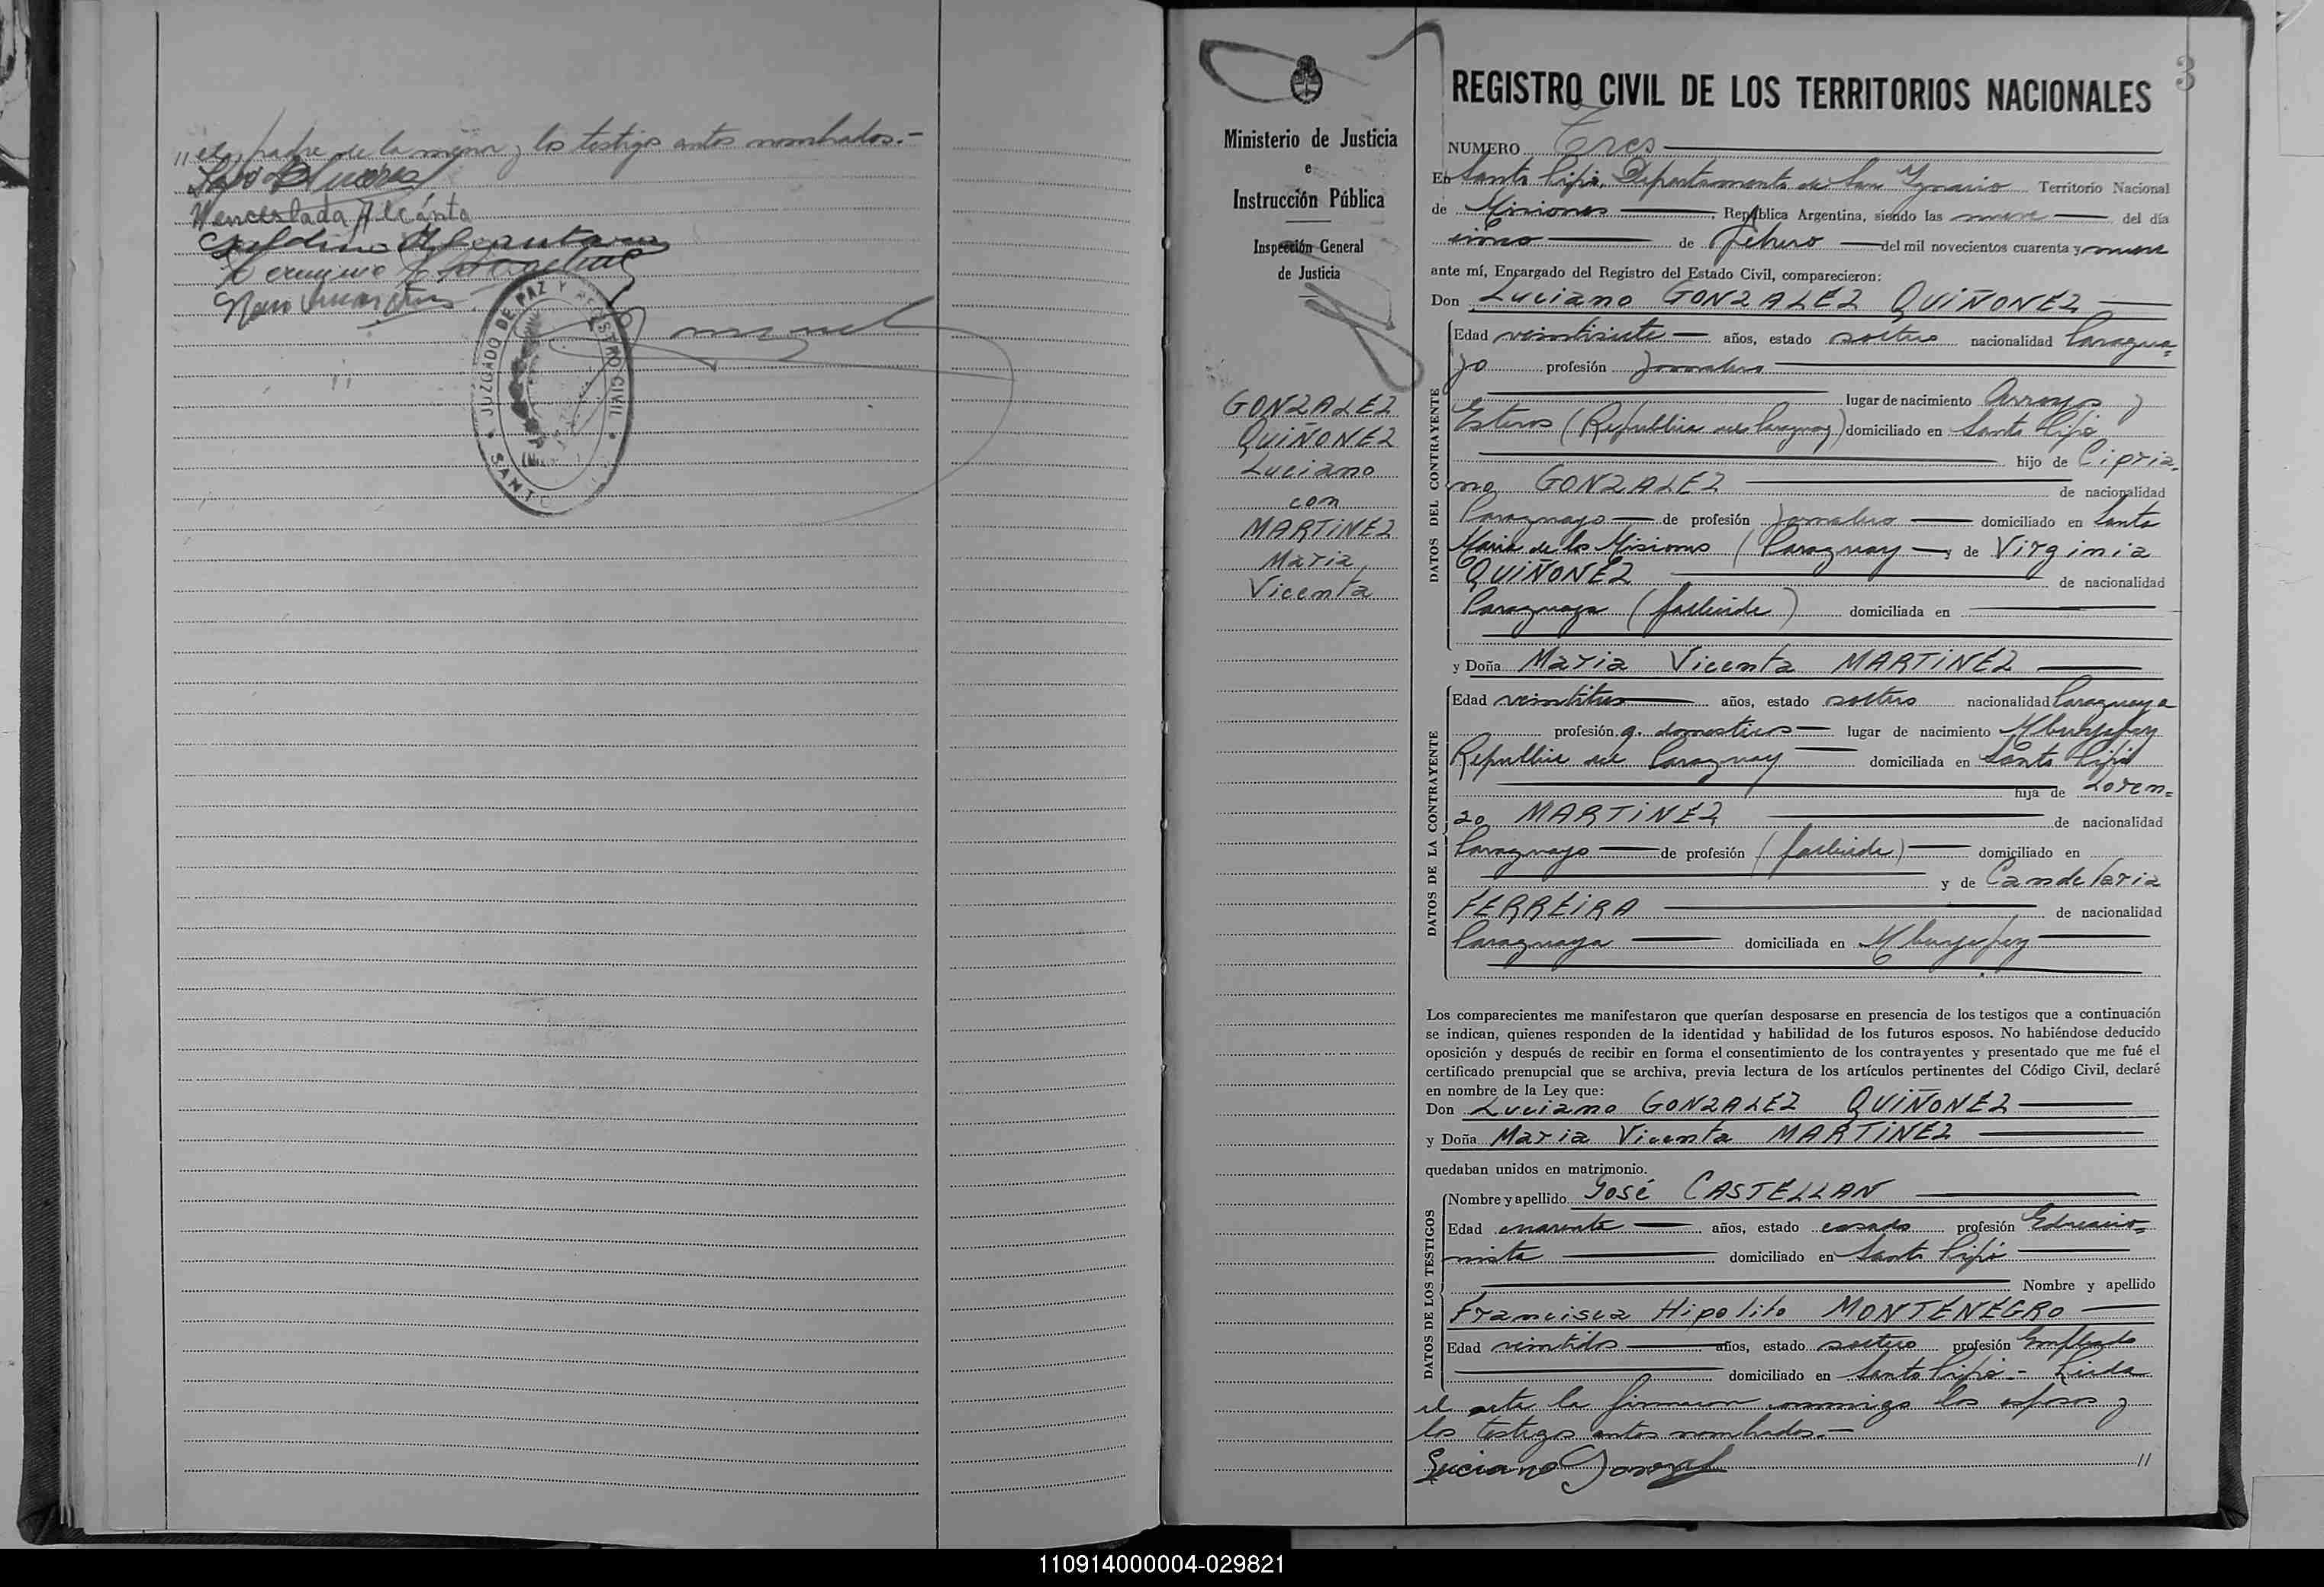 " el padre de la menor y los testigos antes nombrados.-
Wenceslada Alcánta
Alcantara
JUZGADO DE PAZ Y REGISTRO CIVIL
SANTO
3
Ministerio de Justicia
e
Instrucción Pública
Inspección General
de Justicia
GONZALEZ
QUIÑONEZ
Luciano
con
MARTINEZ
Maria
Vicenta
REGISTRO CIVIL DE LOS TERRITORIOS NACIONALES
NUMERO Tres
En Santo Pipó, Departamento de San Ignacio Territorio Nacional
de Misiones República Argentina, siendo las nueve del día
cinco de Febrero del mil novecientos cuarenta y nueve
ante mí, Encargado del Registro del Estado Civil, comparecieron:
Don Luciano GONZALEZ QUIÑONEZ
DATOS DEL CONTRAYENTE
Edad veintisiete años, estado soltero nacionalidad Paragua=
yo profesión Jornalero
lugar de nacimiento Arroyos y
Esteros (Republica del Paraguay) domiciliado en Santo Pipó
hijo de Cipria=
no GONZALEZ de nacionalidad
Paraguayo de profesión Jornalero domiciliado en Santa
Maria de las Misiones (Paraguay y de Virginia
QUIÑONEZ de nacionalidad
Paraguaya (fallecida) domiciliada en
y Doña Maria Vicenta MARTINEZ
DATOS DE LA CONTRAYENTE
Edad veintitres años, estado soltera nacionalidad Paraguaya
profesión q. domesticos lugar de nacimiento Mbuyapey
Republica del Paraguay domiciliada en Santo Pipó
hija de Loren=
zo MARTINEZ de nacionalidad
Paraguayo de profesión (fallecido) domiciliado en
y de Candelaria
FERREIRA de nacionalidad
Paraguaya domiciliada en Mbuyapey
Los comparecientes me manifestaron que querían desposarse en presencia de los testigos que a continuación
se indican, quienes responden de la identidad y habilidad de los futuros esposos. No habiéndose deducido
oposición y después de recibir en forma el consentimiento de los contrayentes y presentado que me fué el
certificado prenupcial que se archiva, previa lectura de los artículos pertinentes del Código Civil, declaré
en nombre de la Ley que:
Don Luciano GONZALEZ QUIÑONEZ
y Doña Maria Vicenta MARTINEZ
quedaban unidos en matrimonio.
DATOS DE LOS TESTIGOS
Nombre y apellido José CASTELLAN
Edad cuarenta años, estado casado profesión Educacio=
nista domiciliado en Santo Pipó
Nombre y apellido
Francisca Hipolito MONTENEGRO
Edad veintidos años, estado soltero profesión Empleado
domiciliado en Santo Pipó - Leida
el acta la firmaron conmigo los esposos y
los testigos antes nombrados.-
Luciano Gonzal "
110914000004-029821